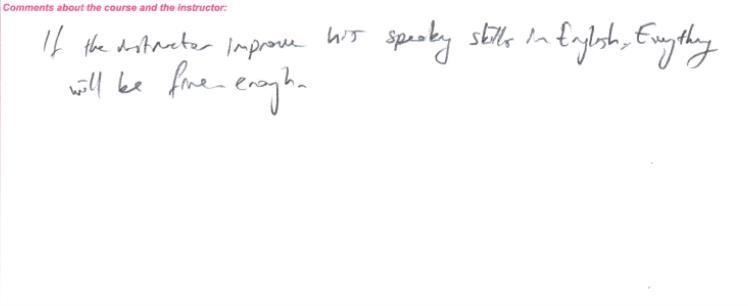 Comments about the course and the instructor:
If the instructor improve his speaking skills in English, Everything
will be fine enough.